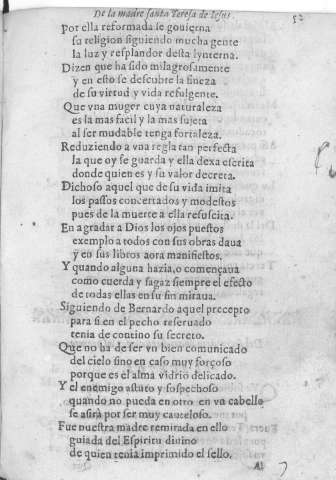 De la madre santa Teresa de Iesus.
Por ella reformada se gouierna
su religion siguiendo mucha gente
la luz y resplandor desta lynterna.
Dizen que ha sido milagrosamente
y en esto se descubre la fineza
de su virtud y vida refulgente.
Que vna muger cuya naturaleza
es la mas facil y la mas sujeta
al ser mudable tenga fortaleza.
Reduziendo a vna regla tan perfecta
la que oy se guarda y ella dexa escrita
donde quien es y su valor decreta.
Dichoso aquel que de su vida imita
los passos concertados y modestos
pues de la muerte a ella resuscita.
En agradar a Dios los ojos puestos
exemplo a todos con sus obras daua
y en sus libros aora manifiestos.
Y quando alguna hazia, o começaua
como cuerda y sagaz siempre el efeto
de todas ellas en su fin miraua.
Siguiendo de Bernardo aquel precepto
para si en el pecho reseruado
tenia de contino su secreto.
Que no ha de ser vn bien comunicado
del cielo sino en caso muy forçoso
porque es el alma vidrio delicado.
Y el enemigo astuto y sospechoso
quando no pueda en otro en vn cabello
se asirà por ser muy cauteloso.
Fue nuestra madre remirada en ello
guiada del Espiritu diuino
de quien tenia imprimido el sello.